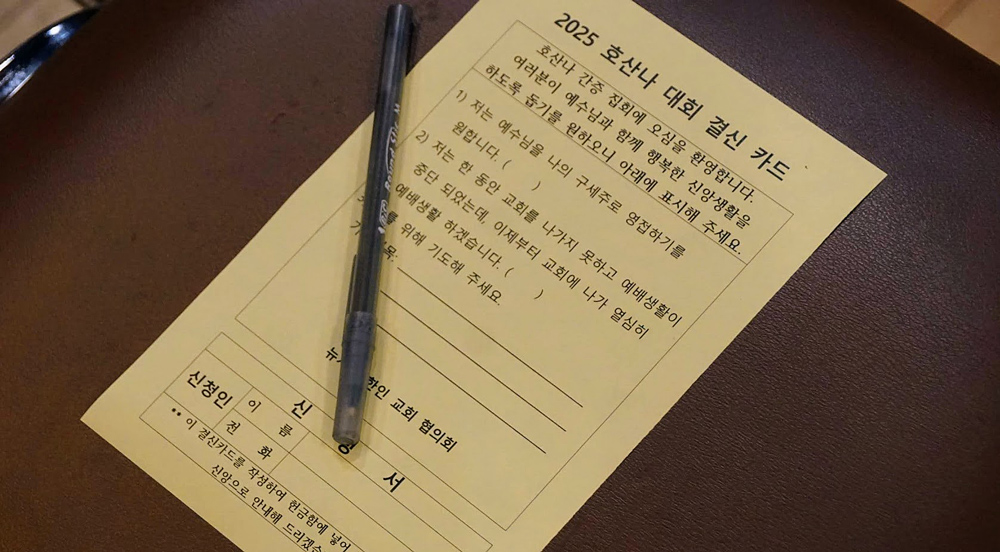 2025 호산나 대회 결신 카드
호산나 간증 집회에 오심을 환영합니다.
여러분이 예수님과 함께 행복한 신앙생활을
하도록 돕기를 원하오니 아래에 표시해 주세요.
1) 저는 예수님을 나의 구세주로 영접하기를
원합니다. ( )
2) 저는 한 동안 교회를 나가지 못하고 예배생활이
중단 되었는데, 이제부터 교회에 나가 열심히
예배생활 하겠습니다. ( )
위해 기도해 주세요.
한인 교회 협의회
신 청 서
신청인 이 름
전 화
** 이 결신카드를 작성하여 헌금함에 넣어
신앙으로 안내해 드리겠